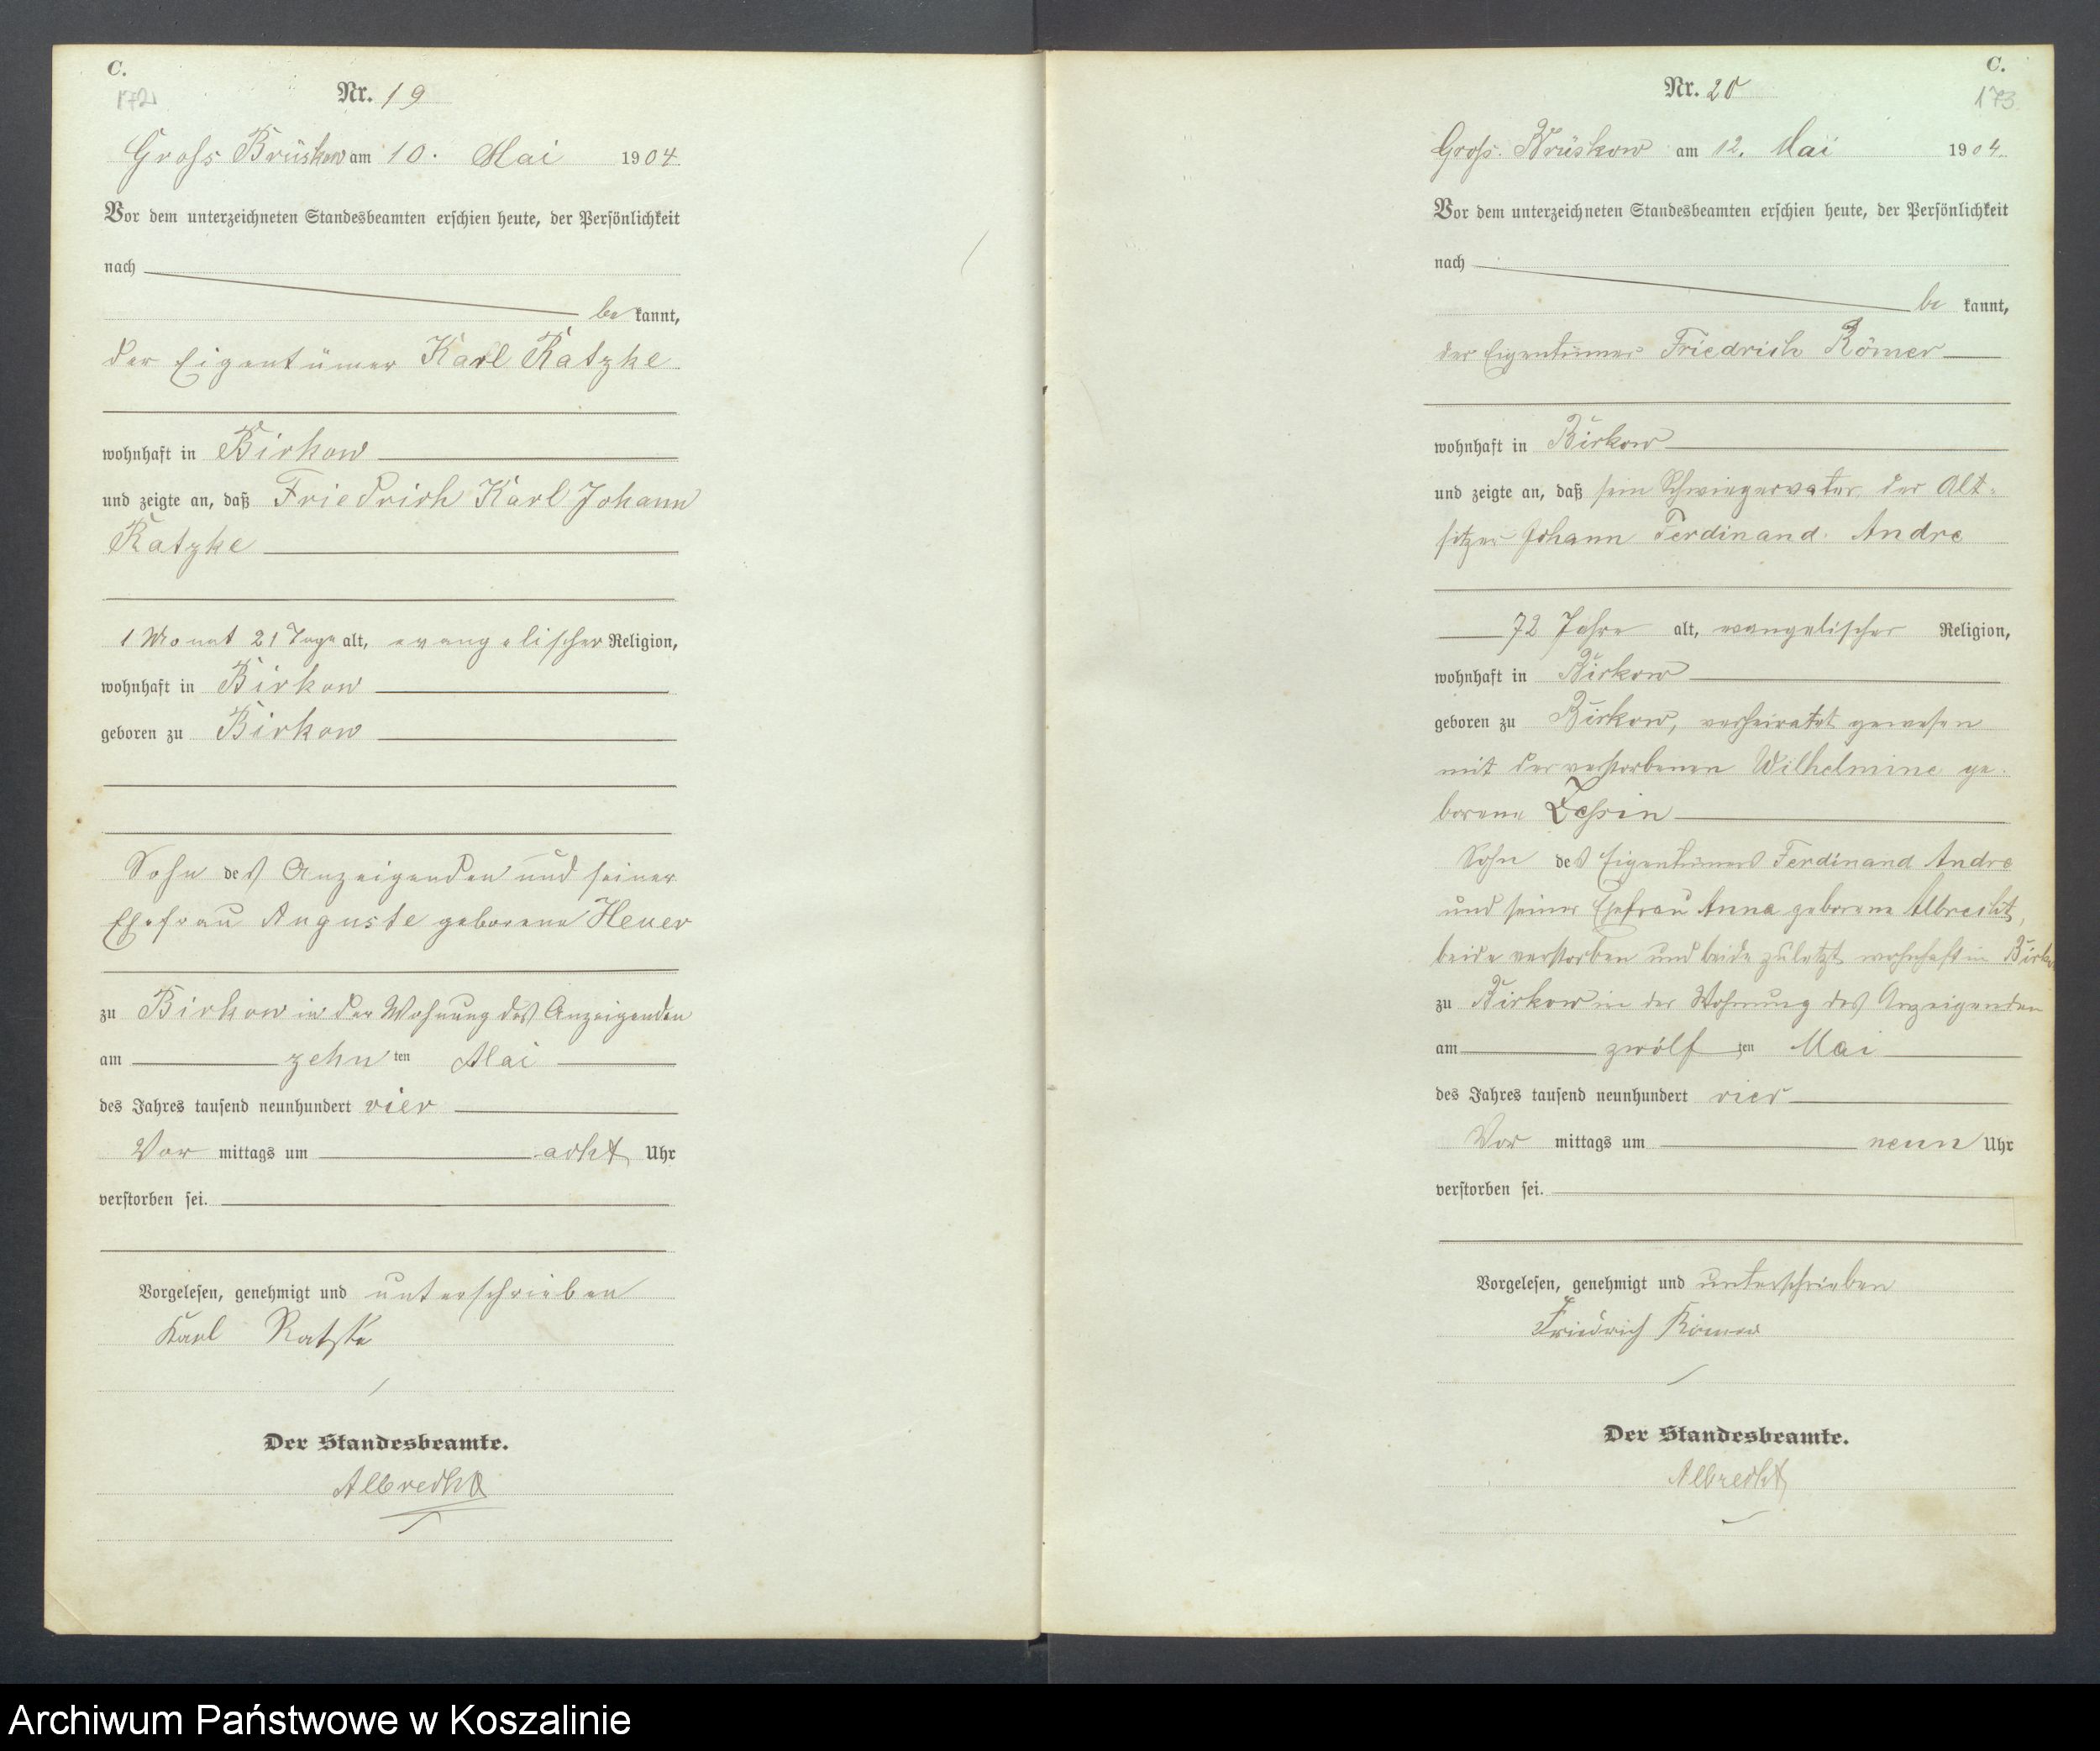 C.
172
Nr. 19
Gross Brüskow am 10. Mai 1904
Vor dem unterzeichneten Standesbeamten erschien heute, der Persönlichkeit
nach
be kannt,
der Eigentümer Karl Ratzke
wohnhaft in Birkow
und zeigte an, daß Friedrich Karl Johann
Ratzke
1 Monat 21 Tage alt, evangelischer Religion,
wohnhaft in Birkow
geboren zu Birkow
Sohn des Anzeigenden und seiner
Ehefrau Auguste geborene Heuer
zu Birkow in der Wohnung des Anzeigenden
am zehn ten Mai
des Jahres tausend neunhundert vier
Vor mittags um acht Uhr
verstorben sei.
Vorgelesen, genehmigt und unterschrieben
Karl Ratzke
Der Standesbeamte.
Albrecht
C.
173
Nr. 20
Gross. Brüskow am 12. Mai 1904.
Vor dem unterzeichneten Standesbeamten erschien heute, der Persönlichkeit
nach
be kannt,
der Eigentümer Friedrich Römer
wohnhaft in Birkow
und zeigte an, daß sein Schwiegervater der Alt-
sitzer Johann Ferdinand Andre
72 Jahre alt, evangelischer Religion,
wohnhaft in Birkow
geboren zu Birkow, verheiratet gewesen
mit der verstorbenen Wilhelmine ge-
borene
Sohn des Eigentümers Ferdinand Andre
und seiner Ehefrau Anna geborene Albrecht,
beide verstorben und beide zuletzt wohnhaft in Birkow
zu Birkow in der Wohnung des Anzeigenden
am zwölf ten Mai
des Jahres tausend neunhundert vier
Vor mittags um neun Uhr
verstorben sei.
Vorgelesen, genehmigt und unterschrieben
Friedrich Römer
Der Standesbeamte.
Albrecht
Archiwum Państwowe w Koszalinie